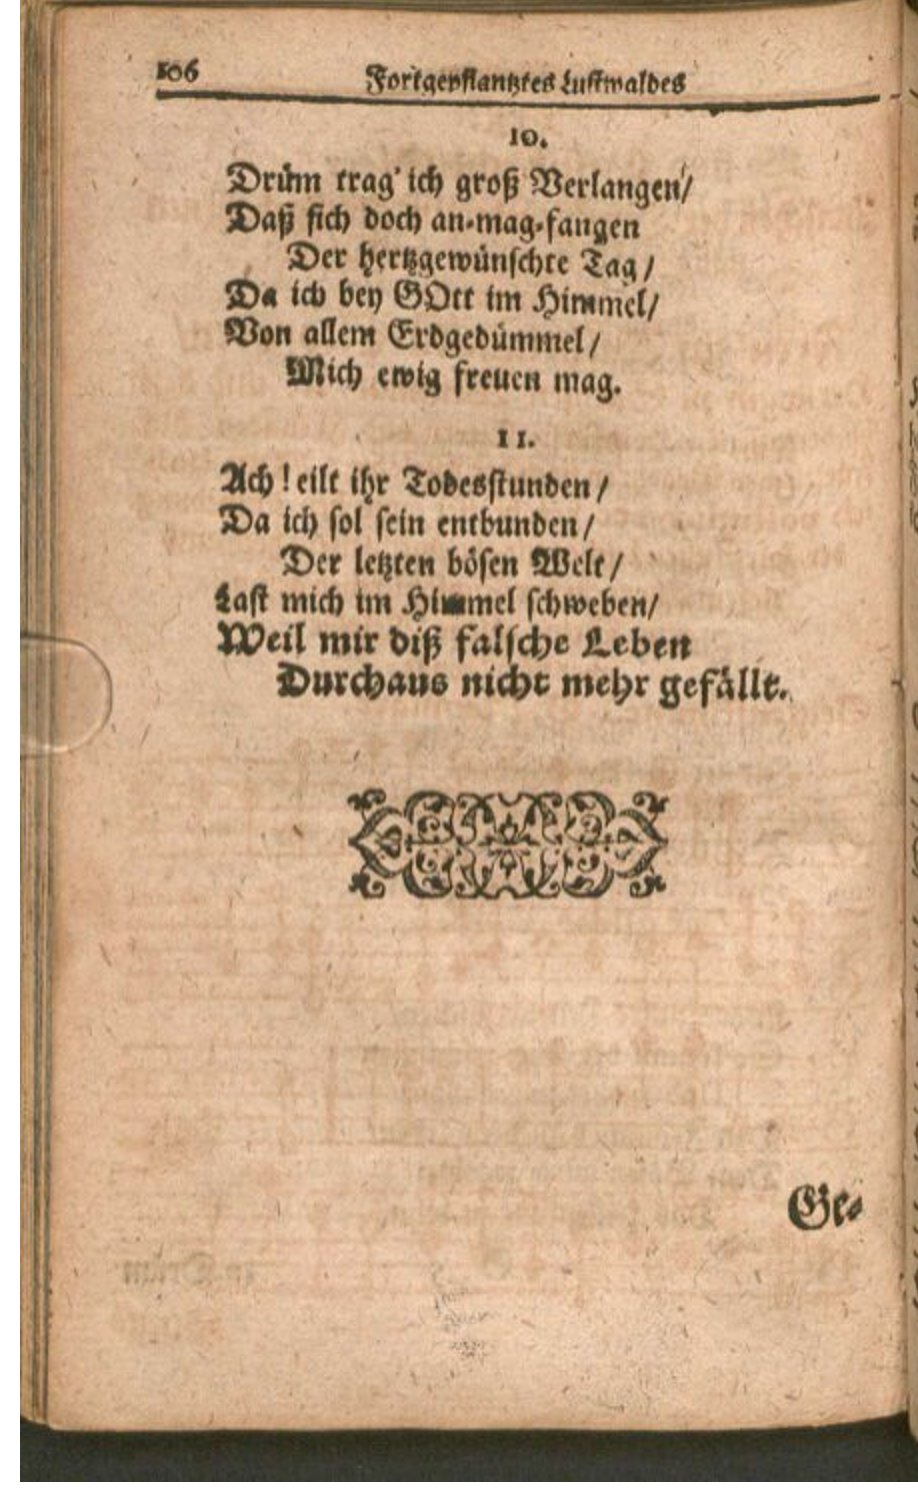 106
Fortgepflantztes Lustwaldes
10.
Drüm trag' ich groß Verlangen/
Daß sich doch an-mag-fangen
Der hertzgewünschte Tag/
Da ich bey GOtt im Himmel/
Von allem Erdgedümmel/
Mich ewig freuen mag.
11.
Ach! eilt ihr Todesstunden/
Da ich sol sein entbunden/
Der letzten bösen Welt/
Last mich im Himmel schweben/
Weil mir diß falsche Leben
Durchaus nicht mehr gefällt.
Ge-